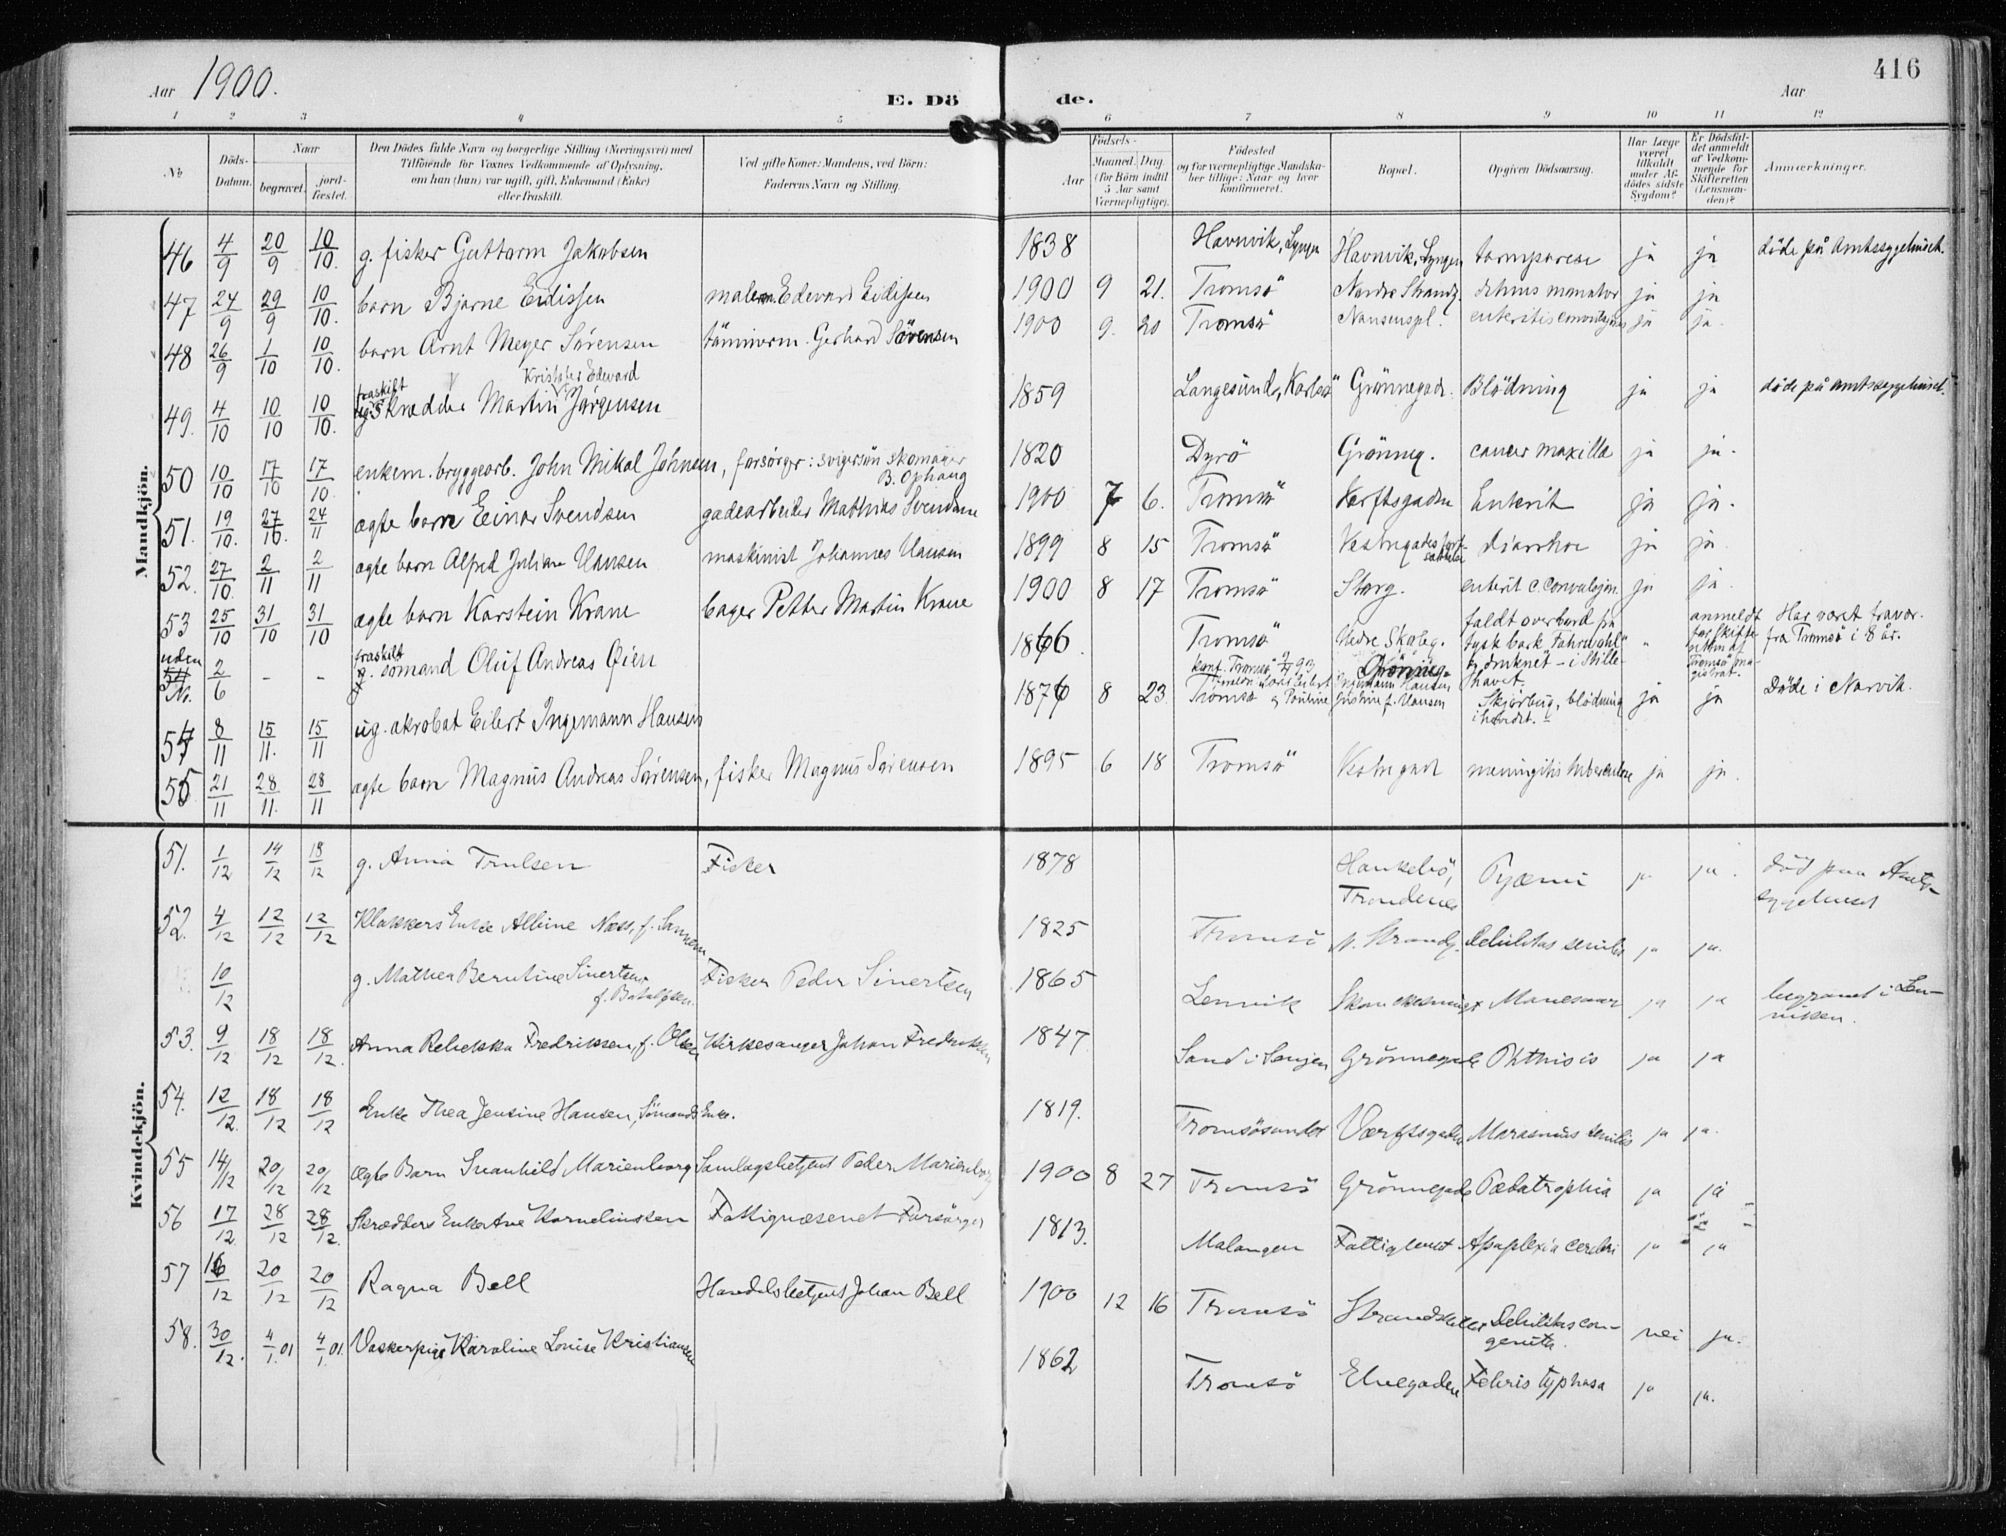 416
Aar 1900.
E. Dö de.
Aar
1 2 3 4 5 6 7 8 9 10 11 12
No
Döds-Datum.
Naar
begravet.
jord-fæstet.
Den Dödes fulde Navn og borgerlige Stilling (Næringsvei) med
Tilföiende for Voxnes Vedkommende af Oplysning,
om han (hun) var ugift, gift, Enkemand (Enke)
eller fraskilt.
Ved gifte Koner: Mandens, ved Börn:
Faderens Navn og Stilling.
Födsels-
Aar
Maaned. Dag.
(for Börn indtil
5 Aar samt
Værnepligtige).
Födested
og for værnepligtige Mandska-
ber tillige: Naar og hvor
konfirmeret.
Bopæl.
Opgiven Dödsaarsag.
Har Læge
været
tilkaldt
under Af-
dödes sidste
Sygdom?
Er Dödsfal-
det anmeldt
af Vedkom-
mende for
Skifteretten
(Lensman-
den)?
Anmærkninger.
Mandkjön.
46 4/9 20/9 10/10. g. fisker Guttorm Jakobsen 1838 Havnvik, Lyngen Havnvik, Lyngen tarmparese ja ja döde på Amtssygehuset.
47 24/9 29/9 10/10. barn Bjarne Eidissen maler Edevard Eidissen 1900 9 21. Tromsö Nordre Strandg. ja ja
48 26/9 1/10 10/10. barn Arnt Meyer Sörensen tömmerm. Gerhard Sörensen 1900 9. 20 Tromsö Nansenspl. enteritis ja ja.
49. 4/10 10/10 10/10. fraskilt skrædder Martin Kristofer Edevard Jørgensen 1859 Langesund, Karlsö Grönnegad. Blödning ja ja döde på amtssygehuset.
50 10/10 17/10 17/10. enkem. bryggearb. John Mikal Johnsen, forsørger: svigersön Skomager B. Ophaug 1820 Dyrö Grönneg. cancer maxilla ja ja.
51. 19/10. 27/10. 24/11 ægte barn Einar Svendsen gadearbeider Mathias Svendsen 1900 7 6. Tromsö Verftsgaden Enterit ja ja.
52. 27/10. 2/11 2/11 ægte barn Alfred Julian Hansen maskinist Johannes Hansen 1899 8 15 Tromsö Vestregades diarrhoe ja ja.
53 25/10 31/10 31/10 ægte barn Karstein Krane bager Petter Martin Krane 1900 8 17 Tromsö Storg. enterit c. convulsjon. ja ja.
uden No. 2/6 - - fraskilt sömand Oluf Andreas Öien 1866. Tromsö Vedre Skoleg. faldt overbord fra tysk bark og druknet - i Stille-havet. " anmeldt for skifteretten af Tromsö magistrat. Har været fravær. fra Tromsö i 8 år.
54 8/11 15/11. 15/11 ug. akrobat Eilert Ingemann Hansen 1876 8 23 Tromsö Skjörbug, blödning ja ja Döde i Narvik.
55 21/11 28/11. 28/11 ægte barn Magnus Andreas Sörensen, fisker Magnus Sörensen 1895 6 18 Tromsö Vestregad meningitis tuberculose ja ja.
Kvindekjön.
51. 1/12 14/12 18/12 g. Anna Trulsen Fisker 1878 Trondenes Pyæmi ja ja. död paa Amts-sygehuset
52. 4/12 12/12 12/12 Klokkers Enke Albine Næss, f. 1825 Tromsö N. Strandg. Debilitas senilis ja ja.
10/12 g. Mathea Berntine Sivertsen, Fisker Peder Sivertsen 1865 Lenvik ja ja begravet i Len-viken.
53. 9/12 18/12 18/12. Anna Rebekka Fredriksen, f. Olsen Kirkesanger Johan Fredriksen 1847 Sand i Senjen Grönnegade Phthisis ja ja
54. 12/12. 18/12 18/12 Enke Thea Jensine Hansen, Sömands Enke. 1819. Tromsösundet Værftsgaden Marasmus senilis ja ja.
55 14/12 20/12 20/12 Ægte Barn Svanhild Marienborg Samlagsbetjent Peder Marienborg 1900 8 27 Tromsö Grönnegade Pædatrophia ja ja
56 17/12. 28/12 28/12. Skrædders Enke Ane Kornelinssen Fattigvæsenet Forsörger 1813. Malangen Fattighuset Apoplexia cerebri ja ja
57 16/12 20/12 20/12 Ragna Bell Handelsbetjent Johan Bell 1900 12 16 Tromsö Debilitas con-genita. nei ja.
58. 30/12. 4/1. 01 4/1. 01. Vaskerpige Karoline Louise Kristiansen 1862 Tromsö Elvegaden Febris typhosa ja ja.